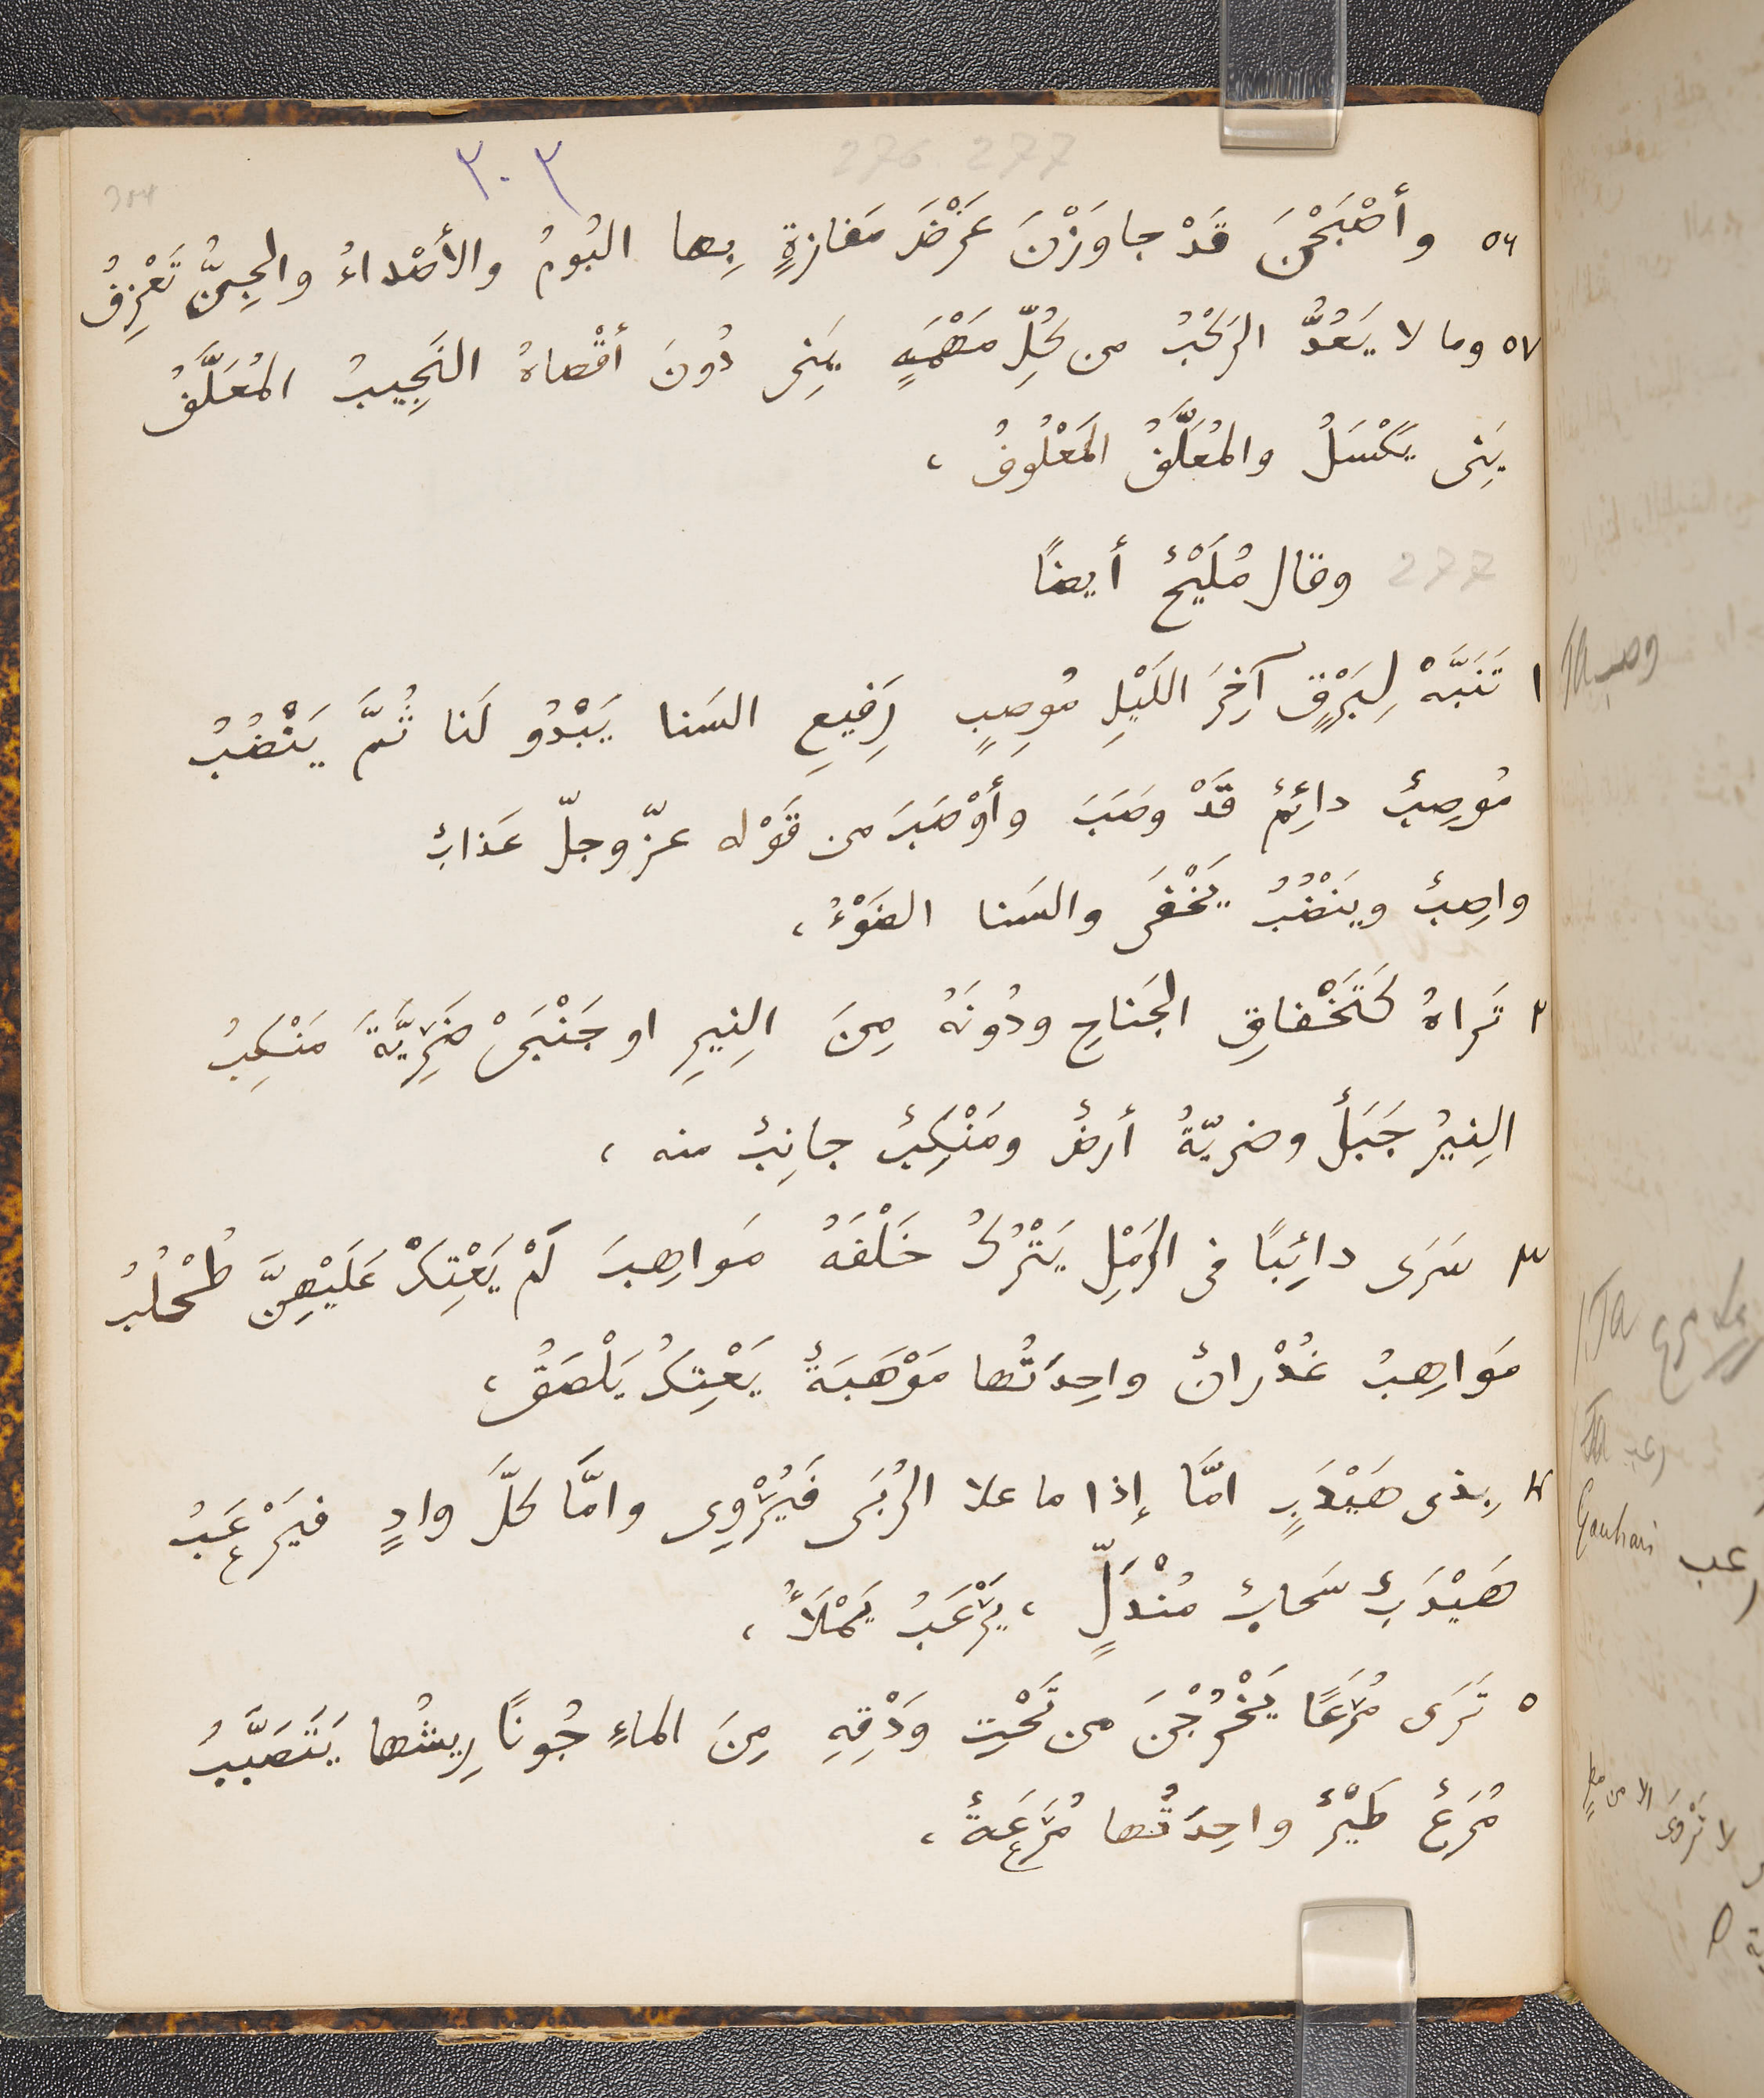 276 277
٣٠٣
304
٥٦ وأصْبَحْنَ قَدْ جاوَزْنَ عَرْضَ مَفازةٍ بِها البُومُ والأصْداءُ والجِنُّ تَعْزِفُ
٥٧ وما لا يَعُدُّ الرَكْبُ من كُلِّ مَهْمَهٍ يَنِى دُونَ أقْصاهُ النَجِيبُ المُعَلَّفُ
يَنِى يَكْسَلُ والمُعَلَّفُ المَعْلُوفُ ،
277 وقال مُلَيْحٌ أيضًا
١ تَنَبَّهْ لِبَرْقٍ آخِرَ اللَيْلِ مُوصِبٍ رَفيعِ السَنا يَبْدُو لَنا ثُمَّ يَنْضُبُ
مُوصِبٌ دائِمٌ قَدْ وصَبَ وأوْصَبَ من قَوْله عزّ وجلّ عَذابٌ
واصِبٌ ويَنْضُبُ يَخْفَى والسَنا الضَوْءُ ،
٢ تَراهُ كَتَخْفاقِ الجَناحِ ودُونَهُ مِنَ النِيرِ او جَنْبَىْ ضَرِيَّةَ مَنْكِبُ
النِيرُ جَبَلٌ وضريّةُ أرضٌ ومَنْكِبٌ جانِبٌ منه ،
٣ سَرَى دائِبًا فى الرَمْلِ يَتْرُكُ خَلْفَهُ مَواهِبَ لَمْ يَعْتِكْ عَلَيْهِنَّ طُحْلُبُ
مَواهِبُ غُدْرانٌ واحِدَتُها مَوْهَبَةٌ يَعْتِكُ يَلْصَقُ ،
٤ بِذى هَيْدَبٍ امَّا إذا ما علا الرُبَى فَيُرْوِى وامَّا كلَّ وادٍ فيَرْعَبُ
هَيْدَبٌ سَحابٌ مُنْدَلٍّ ، يَرْعَبُ يَمْلَأُ ،
٥ تَرَى مُرَعًا يَخْرُجْنَ من تَحْتِ وَدْقِهِ مِنَ الماءِ جُونًا رِيشُها يَتَصَبَّبُ
مُرَعٌ طَيْرٌ واحِدَتُها مُرَعَةٌ ،
وصب TA
TA
رعب TA
رعب Gauhari
لا تَرْوَى الا من